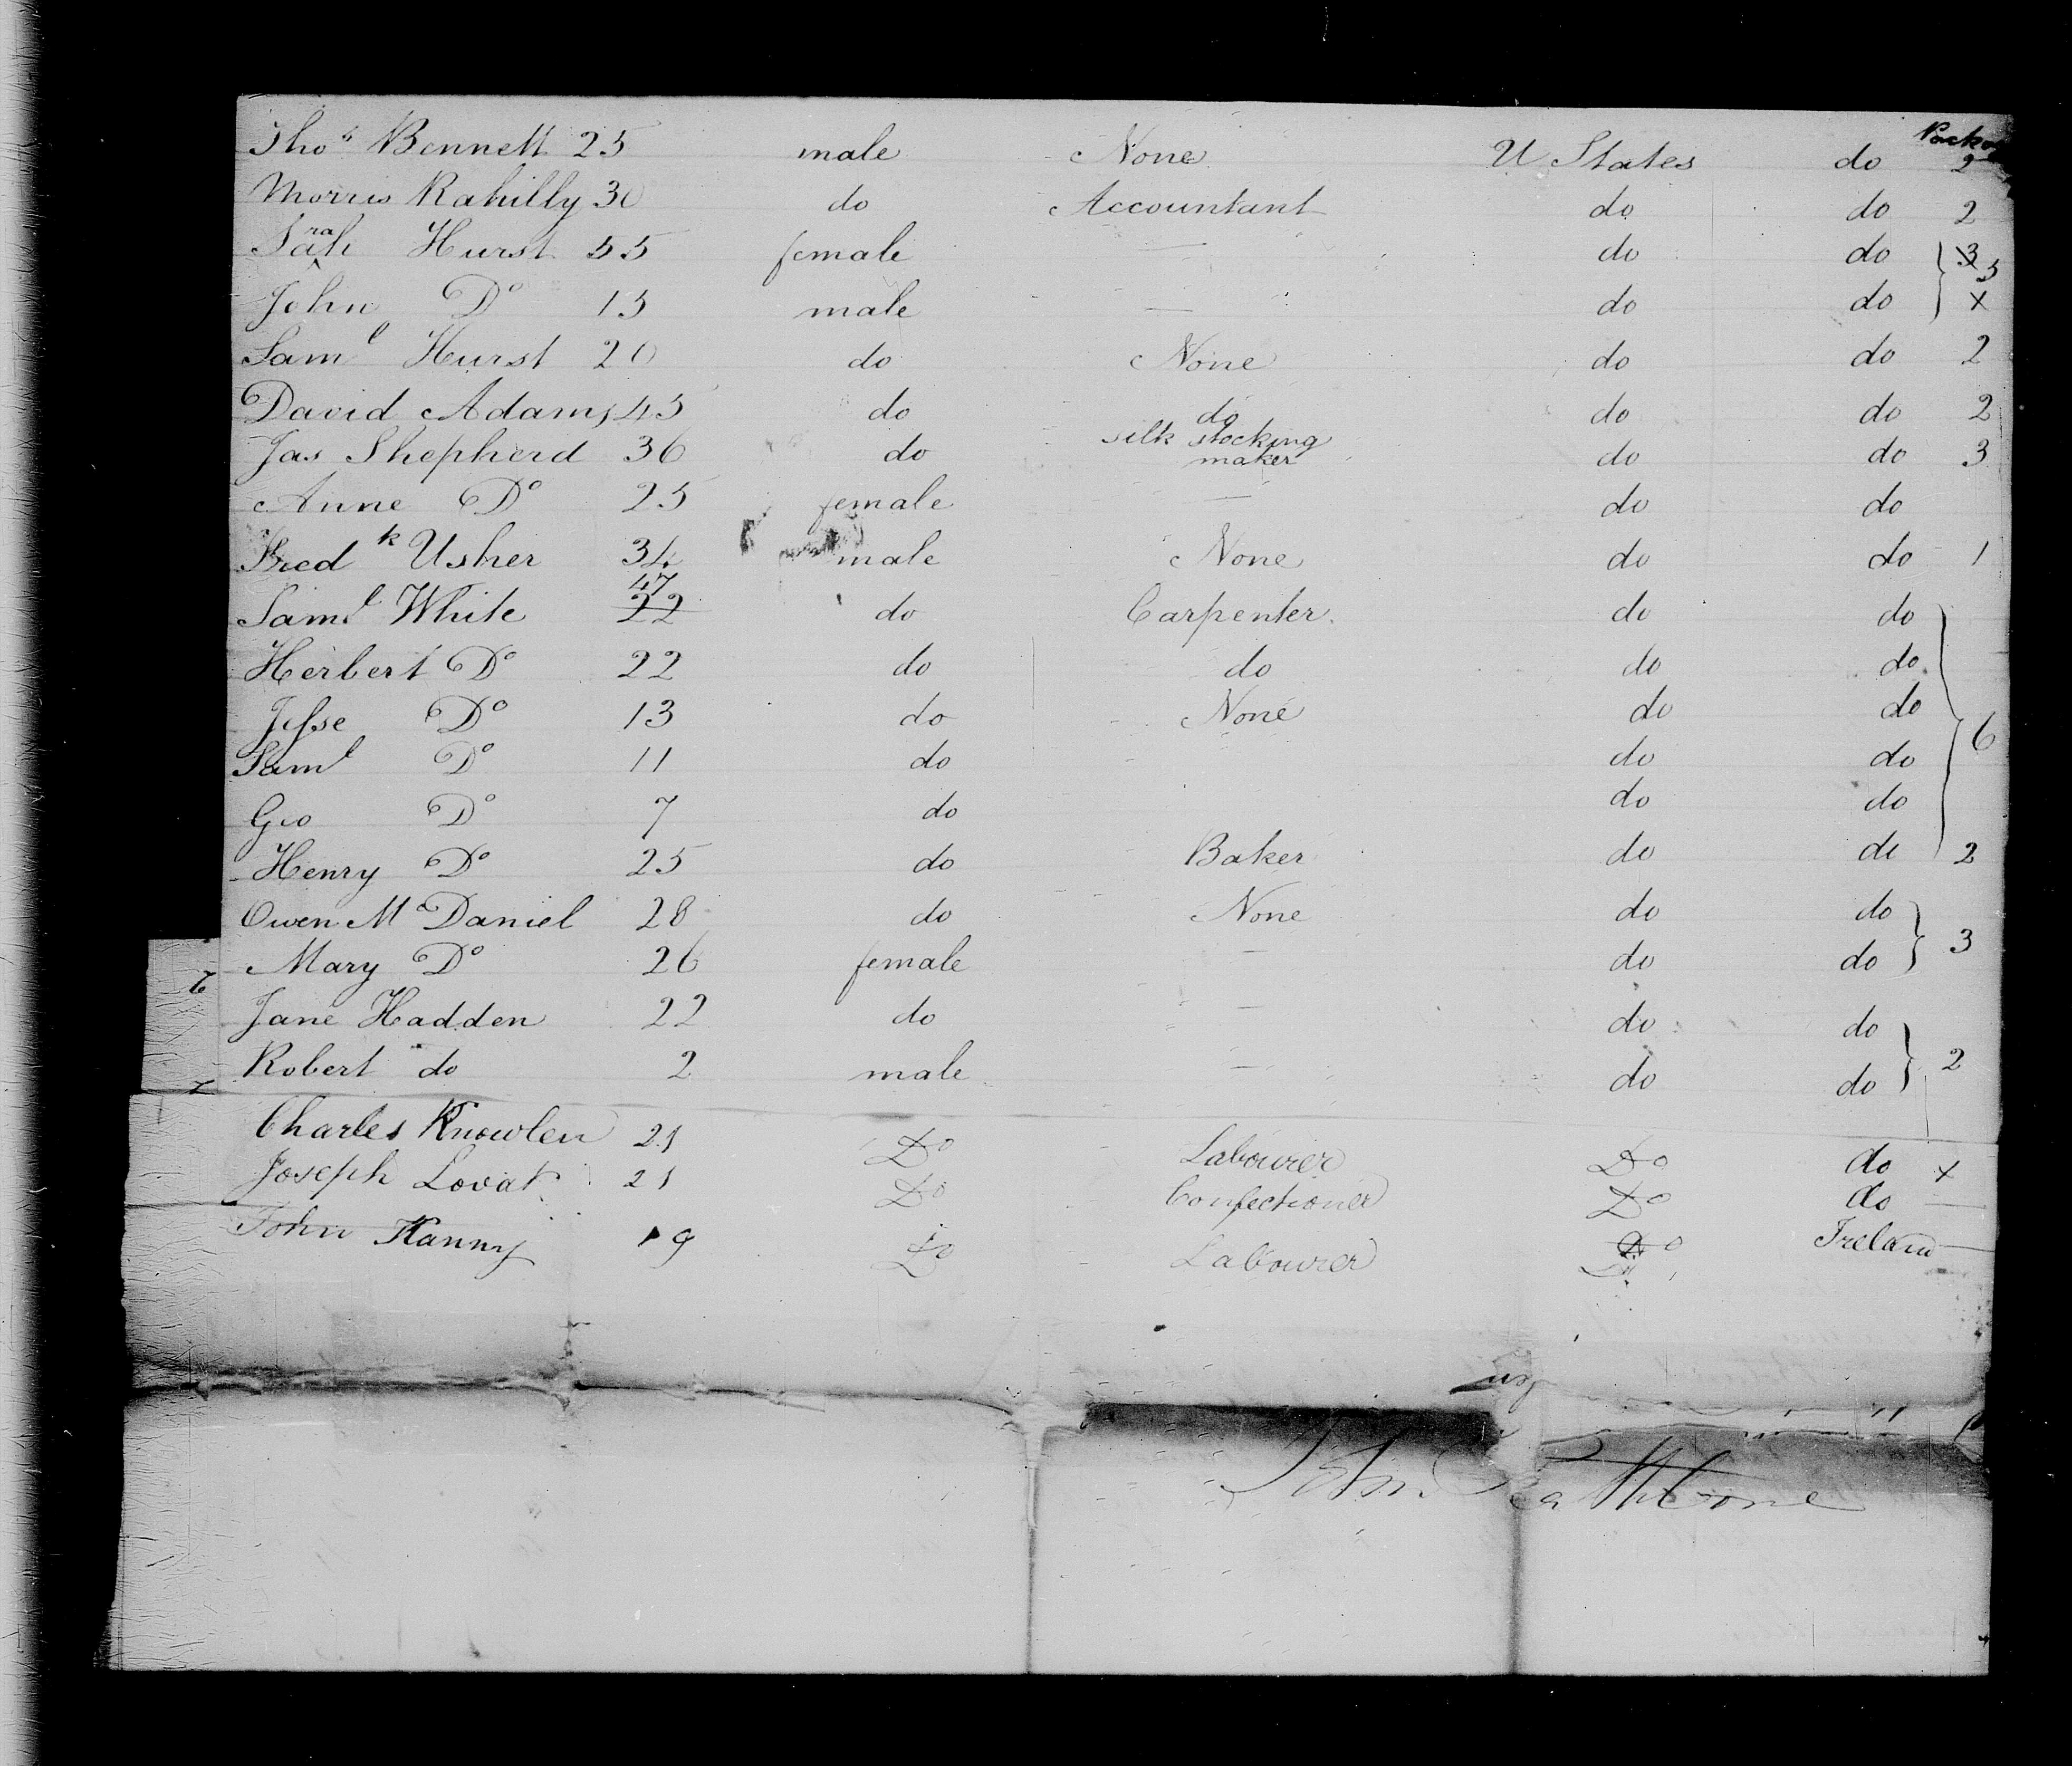 Packs
Thos Bennett 25 male None U States do 2
Morris Rahilly 30 do Accountant do do 2
Sarah Hurst 55 female — do do 3 5
John Do 15 male — do do x
Saml Hurst 20 do None do do 2
David Adams 45 do do do do 2
Jas Shepherd 36 do silk stocking maker do do 3
Anne Do 25 female — do do
Fredk Usher 34 male None do do 1
Saml White 22 47 do Carpenter do do
Herbert Do 22 do do do do
Jesse Do 13 do None do do
Saml Do 11 do do do 6
Geo Do 7 do do do
Henry Do 25 do Baker do do 2
Owen McDaniel 28 do None do do
Mary Do 26 female — do do 3
Jane Hadden 22 do — do do
Robert do 2 male — do do 2
Charles Knowlen 21 Do Labourer Do do x
Joseph Lovat 21 Do Confectioner Do do —
John Kanny 19 Do Labourer Do Ireland —
John Rathbone